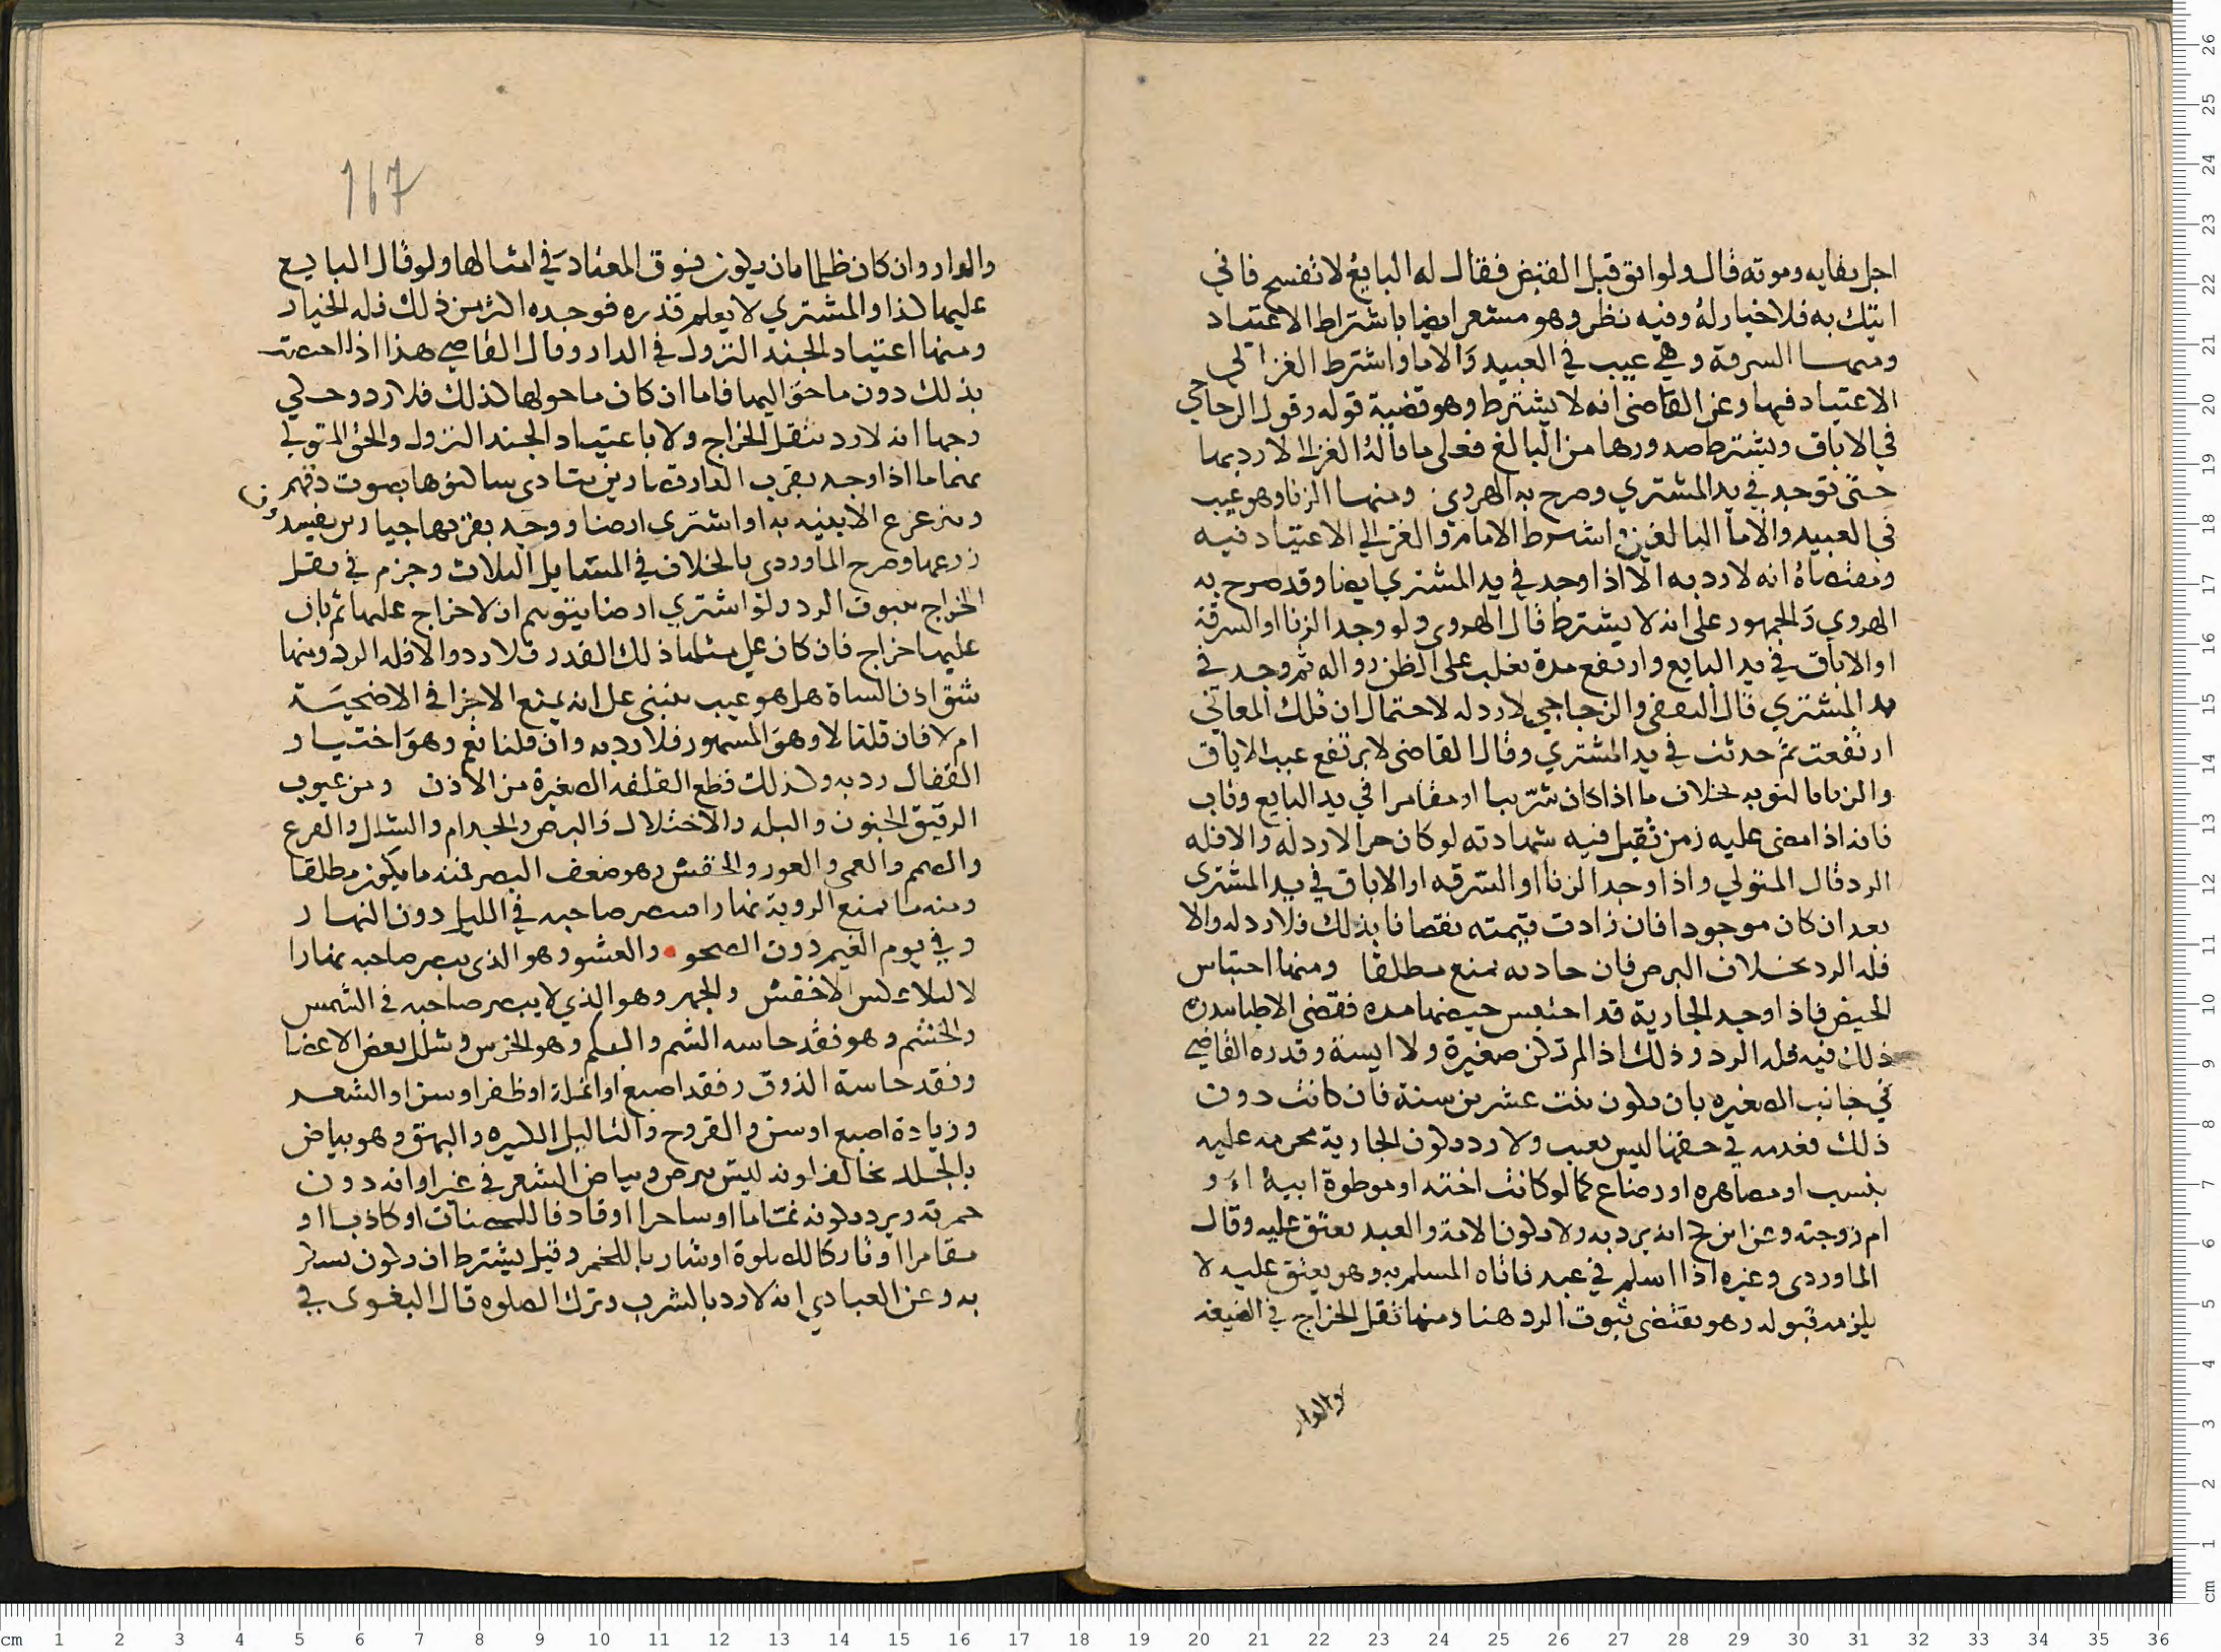 اجل بقايه وموته قال ولو ابق قبل القبض فقال له البايع لا تفسخ فاني
اتيك به فلا خيار له وفيه نظر وهو مشعر ايضا باشتراط الاعتياد
ومنها السرقة وهي عيب في العبيد والاما واشترط الغزالي
الاعتياد فيها وعن القاضي انه لا يشترط وهو قضية قوله وقول الزجاجي
في الاباق ويشترط صدورها من البالغ فعلى ما قاله الغزالي لا رد بها
حتى توجد في يد المشتري وصرح به الهروي ومنها الزنا وهو عيب
في العبيد والاما البالغين واشترط الامام والغزالي الاعتياد فيه
ومقتضاه انه لا رد به الا اذا وجد في يد المشتري ايضا وقد صرح به
الهروي والجمهور على انه لا يشترط قال الهروي ولو وجد الزنا او السرقة
او الاباق في يد البايع وارتفع مدة يغلب على الظن زواله ثم وجد في
يد المشتري قال الثقفي والزجاجي لا رد له لاحتمال ان تلك المعاني
ارتفعت ثم حدثت في يد المشتري وقال القاضي لا يرتفع عيب الاباق
والزنا بالتوبه بخلاف ما اذا كان شريبا او مقامرا في يد البايع وتاب
فانه اذا مضى عليه زمن تقبل فيه شهادته لو كان حرا لا رد له والا فله
الرد قال المتولي واذا وجد الزنا او السرقه او الاباق في يد المشتري
بعد ان كان موجودا فان زادت قيمته نقصانا بذلك فلا رد له والا
فله الرد بخلاف البرص فان حادثه يمنع مطلقا ومنها احتباس
الحيض فاذا وجد الجارية قد احتبس حيضها مده فقضى الاطبا بان
ذلك فيه فله الرد وذلك اذا لم تكن صغيرة ولا ايسة وقدره القاضي
في جانب الصغيره بان يكون بنت عشرين سنة فان كانت دون
ذلك فعدمه في حقها ليس بعيب ولا رد بكون الجارية محرمه عليه
بنسب او مصاهره او رضاع كما لو كانت اخته او موطوة ابيه او
ام زوجته وعن ابن لج انه يرد به ولا بكون الامة والعبد يعتق عليه وقال
الماوردي وغيره اذا اسلم في عبد فاتاه المسلم به وهو يعتق عليه لا
يلزمه قبوله وهو يقتضي ثبوت الرد هنا ومنها ثقل الخراج في الضيعه
والدار
167
والدار وان كان ظلما بان يكون فوق المعتاد في امثالها ولو قال البايع
عليها كذا والمشتري لا يعلم قدره فوجده اكثر من ذلك فله الخيار
ومنها اعتياد الجند النزول في الدار وقال القاضي هذا اذا اختصت
بذلك دون ما حواليها فاما ان كان ما حولها كذلك فلا رد وحكي
وجها انه لا رد بثقل الخراج ولا باعتياد الجند النزول والحق المتولي
بهما ما اذا وجد بقرب الدار قصارين يتاذى ساكنوها بصوت دقهم
وتزعزع الابنيه به او اشترى ارضا ووجد بقربها خنازير يفسد
زرعها وصرح الماوردي بالخلاف في المسايل الثلاث وجزم في ثقل
الخراج بثبوت الرد ولو اشترى ارضا يتوهم ان لا خراج عليها ثم بان
عليها خراج فان كان على مثلها ذلك القدر فلا رد والا فله الرد ومنها
شق اذن الشاة هل هو عيب ينبني على انه يمنع الاجزا في الاضحية
ام لا فان قلنا لا وهو المشهور فلا رد به وان قلنا نعم وهو اختيار
القفال رد به وكذلك قطع القلفه الصغيرة من الاذن ومن عيوب
الرقيق الجنون والبله والاختلال والبرص والجذام والشلل والقرع
والصمم والعمى والعور والخفش وهو ضعف البصر فمنه ما يكون مطلقا
ومنه ما يمنع الروية نهارا فيبصر صاحبه في الليل دون النهار
وفي يوم الغيم دون الصحو والعشو وهو الذي يبصر صاحبه نهارا
لا ليلا عكس الاخفش والجهر وهو الذي لا يبصر صاحبه في الشمس
والخشم وهو فقد حاسه الشم والبكم وهو الخرس وشلل بعض الاعضا
وفقد حاسة الذوق وفقد اصبع او انملة او ظفر او سن او الشعر
وزيادة اصبع او سن والقروح والثاليل الكثيره والبهق وهو بياض
بالجلد يخالف لونه ليس ببرص وبياض الشعر في غير اوانه دون
حمرته ويرد بكونه نماما او ساحرا او قاذفا للمحصنات او كاذبا او
مقامرا او تاركا للصلوة او شاربا للخمر وقيل يشترط ان يكون يسكر
به وعن العبادي انه لا رد بالشرب وترك الصلوه قال البغوي في